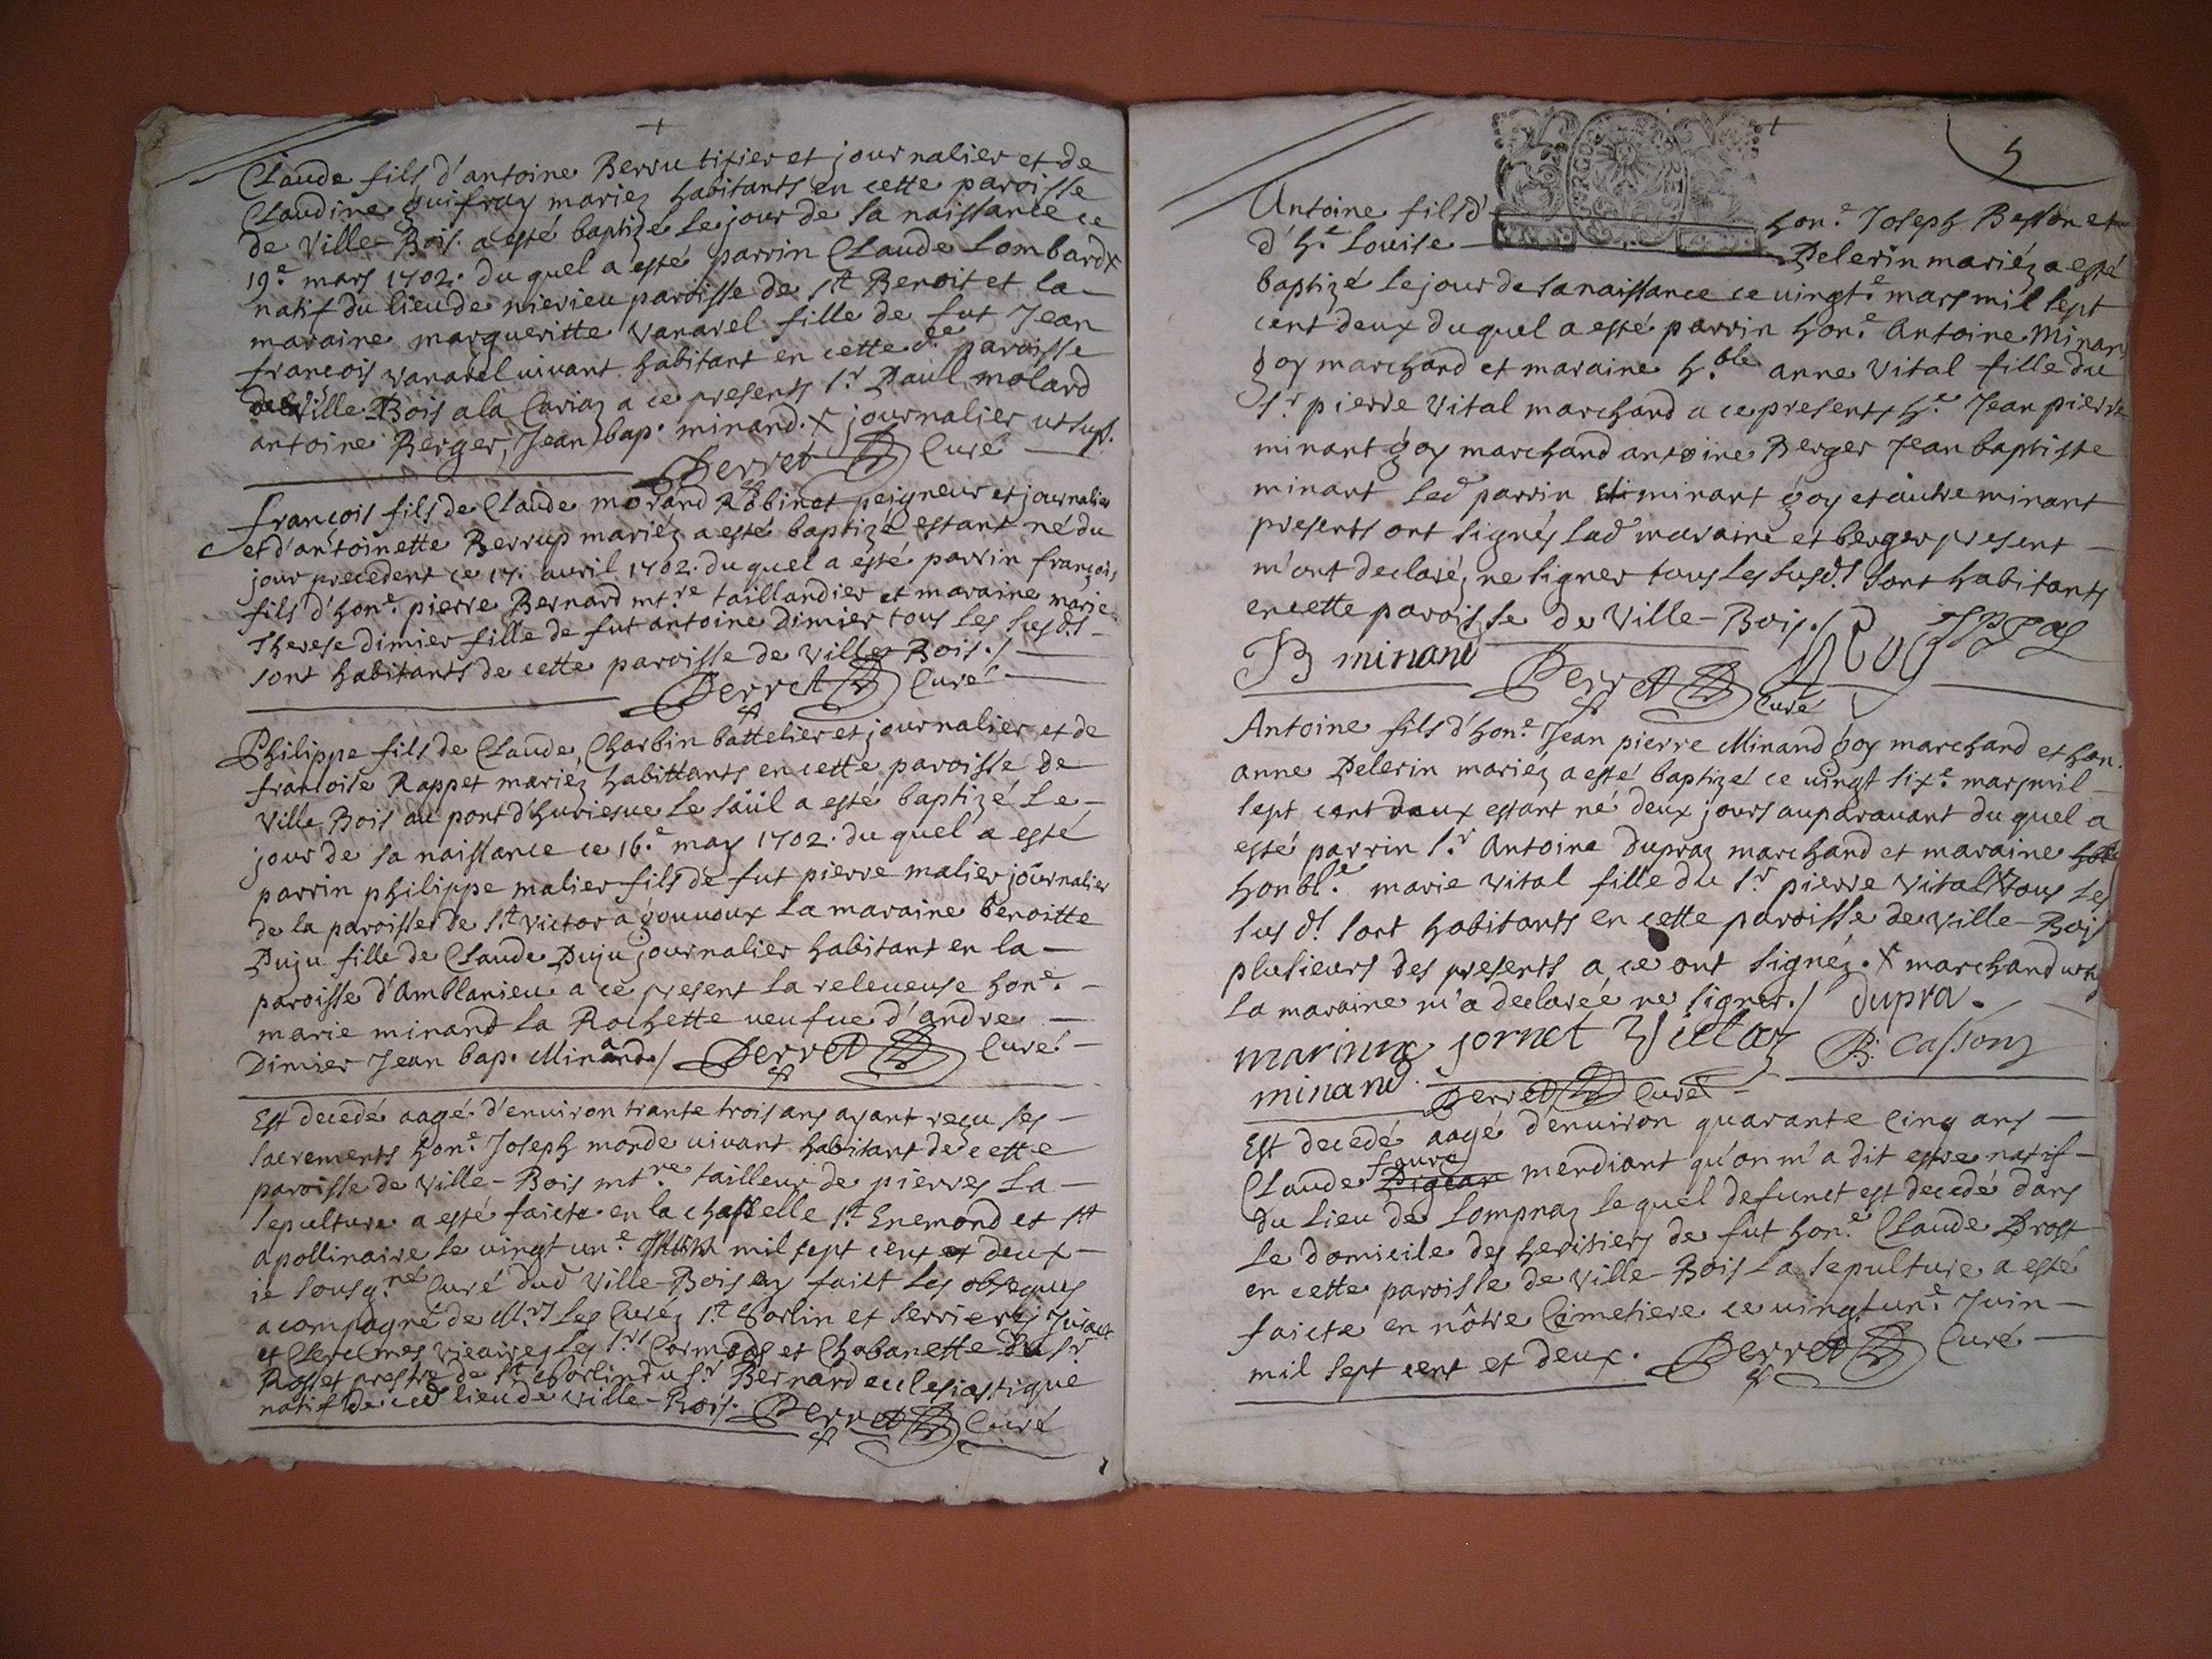 Claude fils d'antoine Berru tixier et journalier et de
Claudine guifray mariez habitants en cette paroisse
de Ville-Bois a esté baptizé le jour de sa naissance ce
19.e mars 1702. du quel a esté parrin Claude Lombard x
natif du lieu de nierieu paroisse de st Benoit et la
maraine margueritte Vanarel fille de fut Jean
françois Vanarel vivant habitant en cette d.te paroisse
de Ville Bois a la Cariaz a ce presents s.r Paul molard
antoine Berger, Jean bap. minand. x journalier ut sup.
Perret Curé
françois fils de Claude morand Robinet peigneur et journalier
et d'antoinette Berrup mariéz a esté baptizé estant né du
jour precedent ce 17. auril 1702. du quel a esté parrin françois
fils d'hon.e pierre Bernard mt.re taillandier et maraine marie
Therese dimier fille de fut antoine Dimier tous les susd.s
sont habitants de cette paroisse de Ville Bois./
Perret Curé
Philippe fils de Claude Charbin battelier et journalier et de
francoise Rappet mariez habittants en cette paroisse de
Ville Bois au pont d'huriesue le saül a esté baptizé le
jour de sa naissance ce 16.e may 1702. du quel a esté
parrin philippe malier fils de fut pierre malier journalier
de la paroisse de s.t Victor a gouuoux la maraine benoitte
Duju fille de Claude Duju journalier habitant en la
paroisse d'Amblanieu a ce present la releueuse hon.e
marie minand la Rochette ueufue d'andre
Dimier Jean bap. Minand./ Perret Curé
Est decedé aagé d'enuiron trante trois ans ayant reçu ses
sacrements hon.e Joseph monde uiuant habitant de cette
paroisse de Ville-Bois mt.re tailleur de pierres la
sepulture a esté faicte en la chapelle s.t Enemond et s.t
apollinaire le uingt un.e mil sept cent et deux
ie sousg.né Curé dud Ville-Bois ay faict les obseques
acompagné de M.rs les Curéz s.t Sorlin et Serrieres
et mes vicaires les s.rs Cormods et Chabanette du s.r
Rosset prestre de s.t Sorlin du s.r Bernard eclesiastique
natif de ced lieu de Ville-Bois. Perret Curé
5
Antoine fils d' hon.e Joseph Besson et
d'h.e Louise Pelerin mariéz a esté
baptizé le jour de sa naissance ce uingt.e mars mil sept
cent deux du quel a esté parrin hon.e Antoine Minan
goy marchand et maraine h.ble anne Vital fille du
s.r pierre Vital marchand a ce presents h.e Jean pierre
minant goy marchand antoine Berger Jean baptiste
minant led parrin minant goy et autre minant
presents ont signés lad maraine et berger present
m'ont declaré ne signer tous les susd.s sont habitants
en cette paroisse de Ville-Bois./
B minand Perret Curé
Antoine fils d'hon.e Jean pierre Minand goy marchand et hon.
anne Pelerin mariéz a esté baptizé ce uingt six.e mars mil
sept cent deux estant né deux jours auparauant du quel a
esté parrin s.r Antoine Dupraz marchand et maraine
honbl.e marie Vital fille du s.r pierre Vital x tous les
susd.s sont habitants en cette paroisse de Ville-Bois
plusieurs des presents a ce ont signéz. x marchand ut sup
la maraine m'a declarée ne signer./ dupra.
jornet B. Cassonz
minand. Perret Curé
Est decedé aagé d'enuiron quarante cinq ans
Claude faure mendiant qu'on m'a dit estre natif
du lieu de Lompnaz lequel defunct est decedé dans
le domicile des heritiers de fut hon.e Claude Drost
en cette paroisse de Ville-Bois la sepulture a esté
faicte en nôtre Cimetiere ce uingt un.e Juin
mil sept cent et deux. Perret Curé